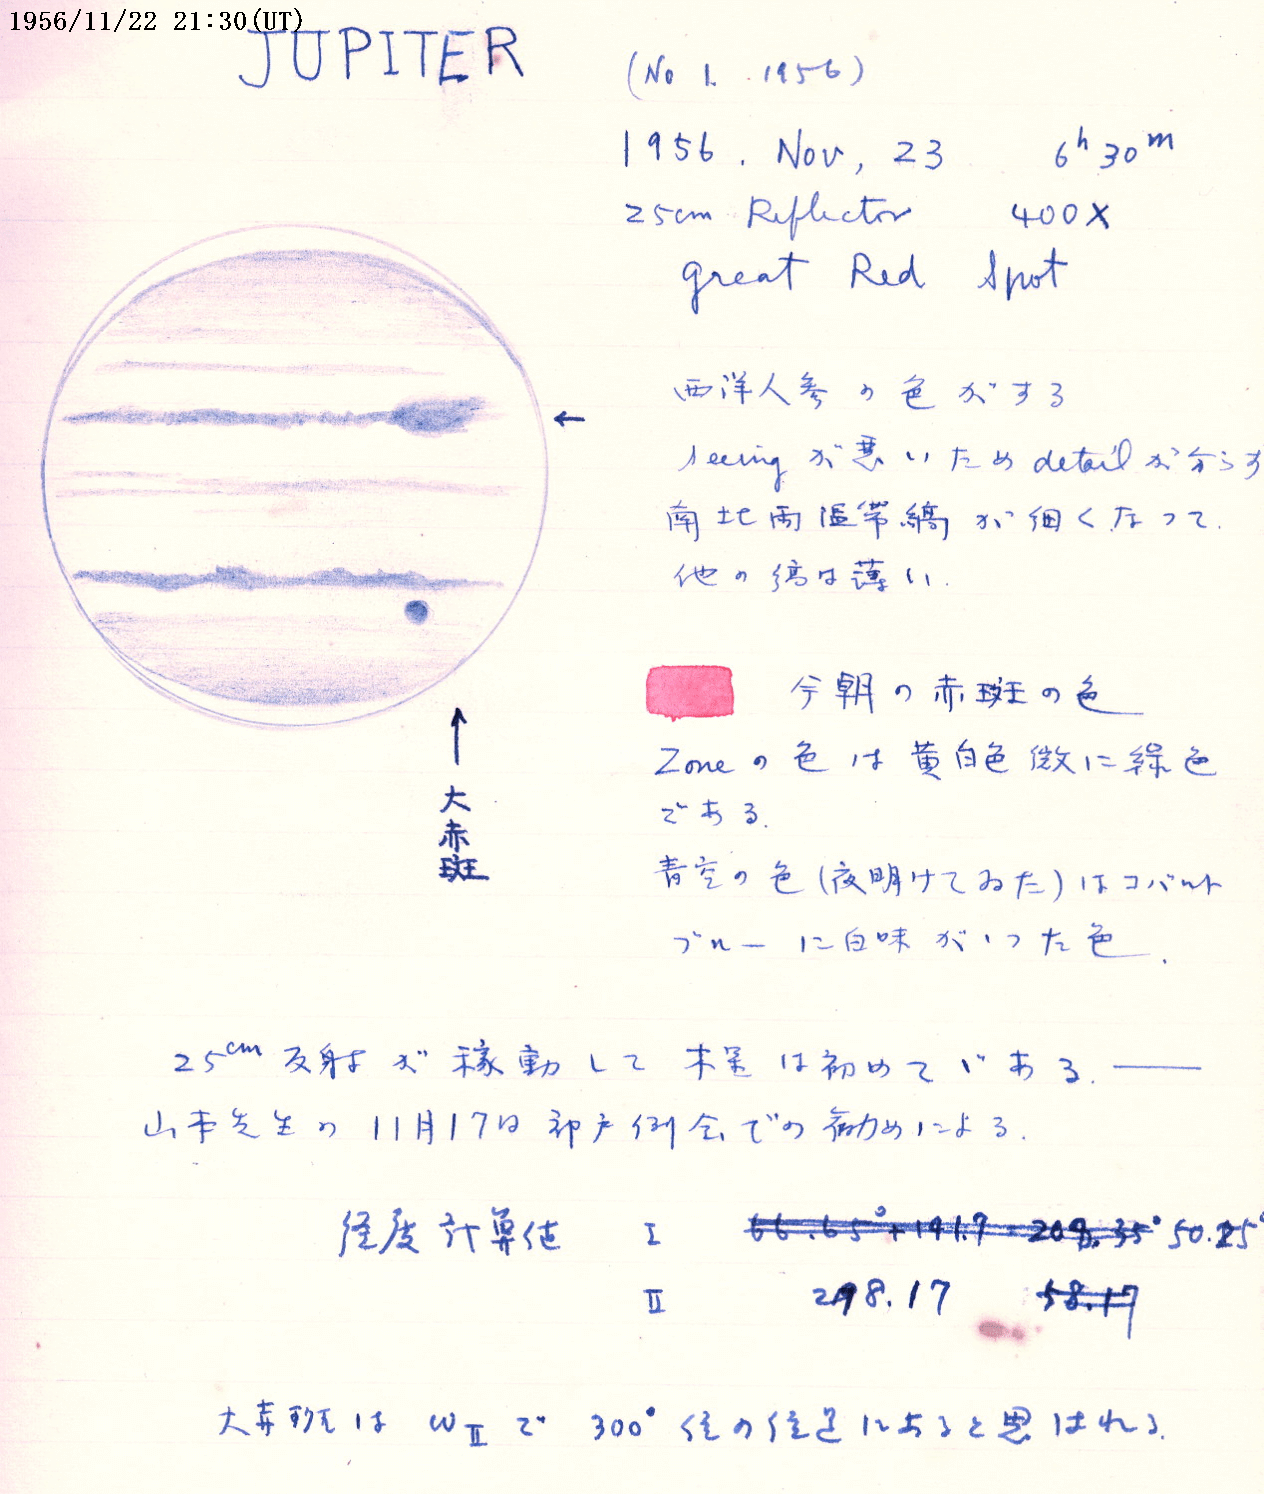 1956/11/22 21:30(UT)
JUPITER
(No 1. 1956)
1956. Nov, 23 6h 30m
25cm Reflector 400X
great Red Spot
西洋人参の色がする
seeingが悪いためdetailが分らず
南北両温帯縞が細くなって.
他の縞は薄い.
今朝の赤斑の色
Zoneの色は黄白色微に緑色
である.
青空の色(夜明けてゐた)はコバルト
ブルーに白味がゝった色.
←
↑
大赤斑
25cm反射が稼動して木星は初めてである.——
山本先生の11月17日神戸例会での勧めによる.
経度計算値 I 66.65°+141.7=208.35° 50.25°
II 298.17 58.17
大赤斑はωIIで300°位の位置にあると思はれる.